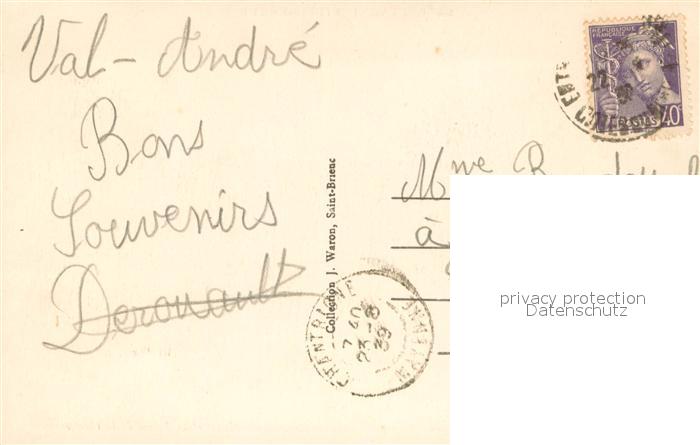 Val-André
Bons
Souvenirs
Derouault
Collection J. Waron, Saint-Brieuc
RÉPUBLIQUE
FRANÇAISE
POSTES 40c
Mme
à
7 40
23-8
39
MAYENNE
privacy protection
Datenschutz